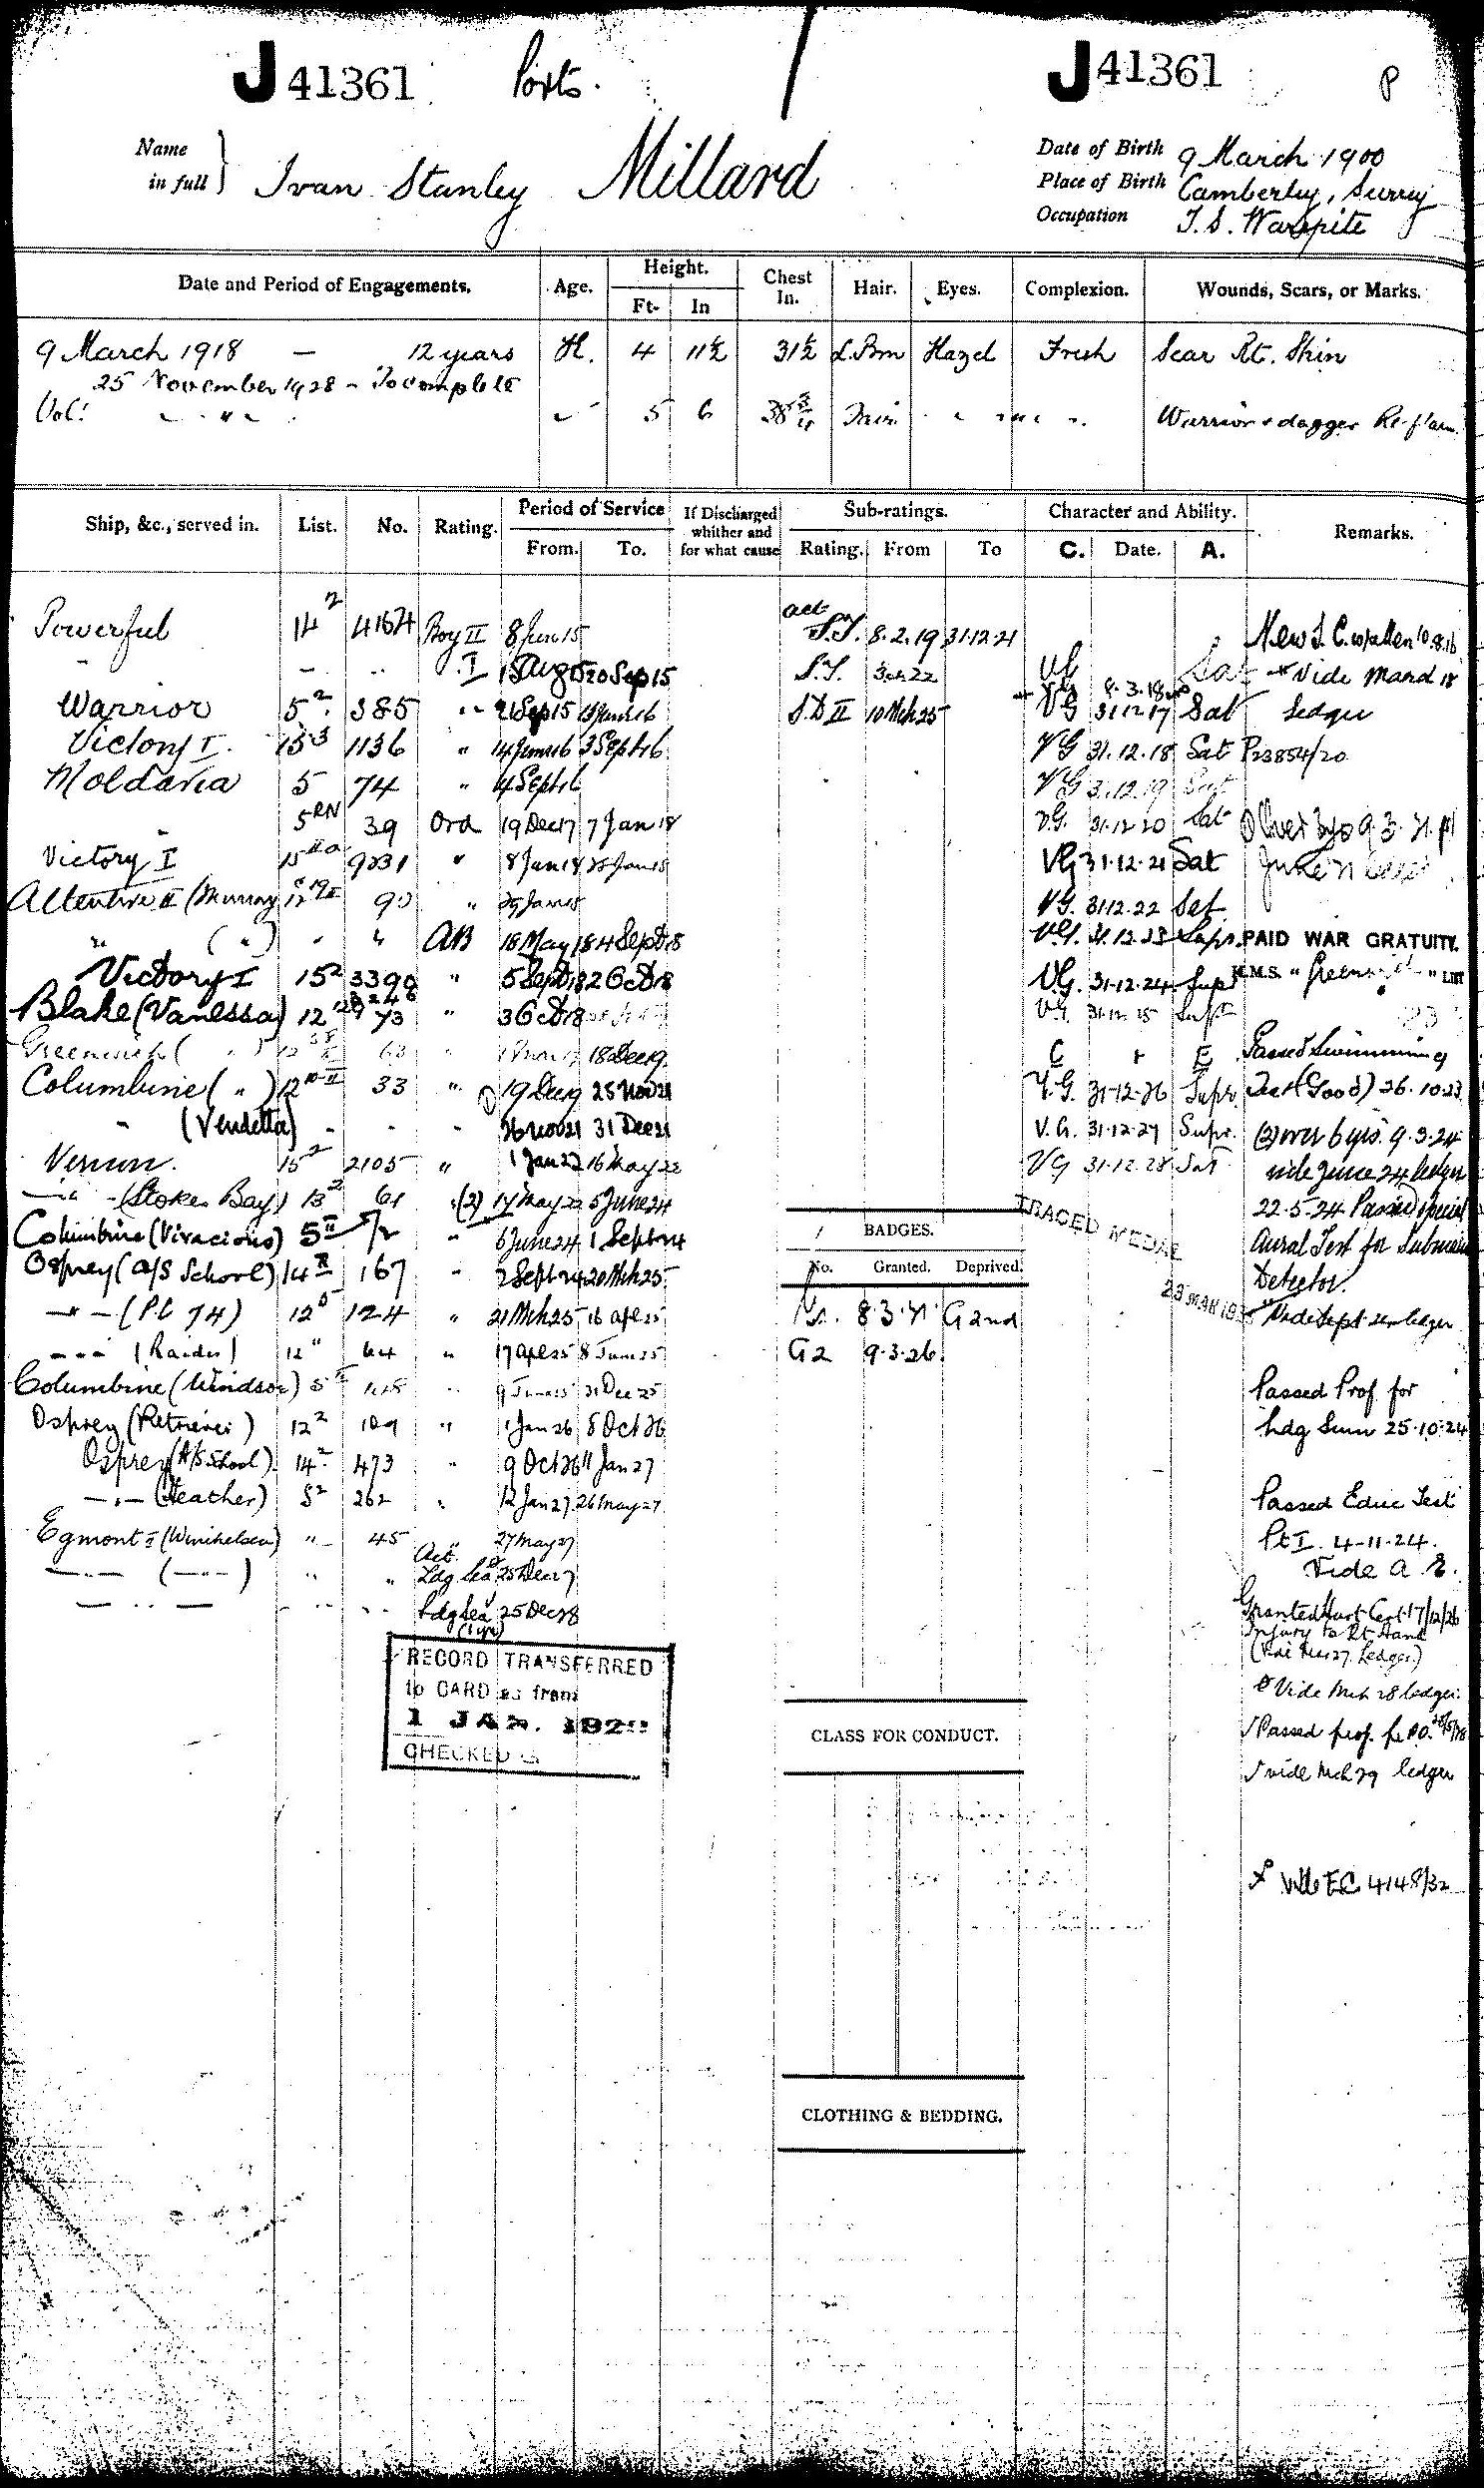 J 41361 Ports. J 41361 P
Name in full } Ivan Stanley Millard
Date of Birth 9 March 1900
Place of Birth Camberley, Surrey
Occupation T. S. Warspite
Date and Period of Engagements. Age. Height. Ft. In Chest In. Hair. Eyes. Complexion. Wounds, Scars, or Marks.
9 March 1918 — 12 years 4 11½ 31½ L. Brn Hazel Fresh Scar Rt. Shin
25 November 1928 - To complete
Vol: " 5 6 38¾ Fair Warrior & dagger Rt. f'arm.
Ship, &c., served in. List. No. Rating. Period of Service From. To. If Discharged whither and for what cause Sub-ratings. Rating. From To Character and Ability. C. Date. A. Remarks.
Powerful 14² 4164 Boy II 8 June 15 act S.T. 8.2.19 31.12.21
" I Aug 15 20 Sep 15 S.T. 22 VG Sat Vide March 18
Warrior 5² 385 " 21 Sep 15 13 June 16 S.D II 10 Mch 25 VG 31.12.17 Sat Ledger
8.3.18
Victory I. 15³ 1136 " 14 June 16 3 Sept 16 VG 31.12.18 Sat P23854/20
Moldavia 5 74 " 4 Sept 16 VG 31.12.19 Sat
" 5 RN 39 Ord 19 Dec 17 7 Jan 18 V.G. 31.12.20 Sat ① Over 3 yrs 9.3.21
Victory I 9231 " 8 Jan 18 28 Jan 18 VG 31.12.21 Sat June 21
Attentive II (Murray 90 " 29 Jan 18 VG. 31.12.22 Sat
" (") " " AB 18 May 18 4 Sept 18 VG. 31.12.23 Supr. PAID WAR GRATUITY.
Victory I 15² 3398 " 5 Sept 18 2 Oct 18 V.G. 31.12.24 Supr H.M.S. " Greenwich " LIST
Blake (Vanessa) 12 73 " 3 Oct 18 VG 31.12.25 Supr
Greenwich ( " ) 63 " 18 Dec 19. C r E Passed Swimming
Columbine ( " ) 12 33 " ① 19 Dec 19 25 Nov 21 V.G. 31-12-26 Supr. Test (Good) 26.10.23
" (Vendetta) " " " 26 Nov 21 31 Dec 21 V.G. 31.12.27 Supr. (2) over 6 yrs. 9.3.24
Vernon. 15² 2105 " 1 Jan 22 16 May 22 VG 31.12.28 Sat vide June 24 ledger
— " — (Stokes Bay) 13² 61 "(2) 17 May 22 5 June 24 TRACED MEDAL 22.5.24 Passed special
Columbine (Vivacious) 5 II " 6 June 24 1 Sept 24 BADGES. Aural Test for Submarine
Osprey (A/S School) 14 167 " 2 Sept 24 20 Mch 25 No. Granted. Deprived. Detector.
— " — (P.C 74) 12 124 " 21 Mch 25 16 Apl 25 8.3.21 G 2nd Vide Sept 24 ledger
— " — (Raider) 12 " 64 " 17 Apl 25 8 June 25 G2 9.3.26.
Columbine (Windsor) 5 " 9 June 25 31 Dec 25 Passed Prof. for
Osprey (Retriever) 12² 109 " 1 Jan 26 8 Oct 26 Ldg Smn 25.10.24
Osprey (A/S School) 14² 473 " 9 Oct 26 11 Jan 27
— " — (Heather) 5² 262 " 12 Jan 27 26 May 27 Passed Educ Test
Egmont II (Winchelsea) " 45 27 May 27 Pt I. 4-11-24.
— " — ( — " — ) " " Act. Ldg Sea 25 Dec 27 Vide
— " — " " Ldg Sea 25 Dec 28 Granted Hurt Cert 17/12/26
Injury to Rt Hand
(Vide Mch 27. Ledger.)
RECORD TRANSFERRED
to CARD as from
1 JAN. 1929
CHECKED
Vide Mch 28 ledger.
CLASS FOR CONDUCT.
√ Passed prof. for P.O.
√ vide Mch 29 ledger
4148/32
CLOTHING & BEDDING.